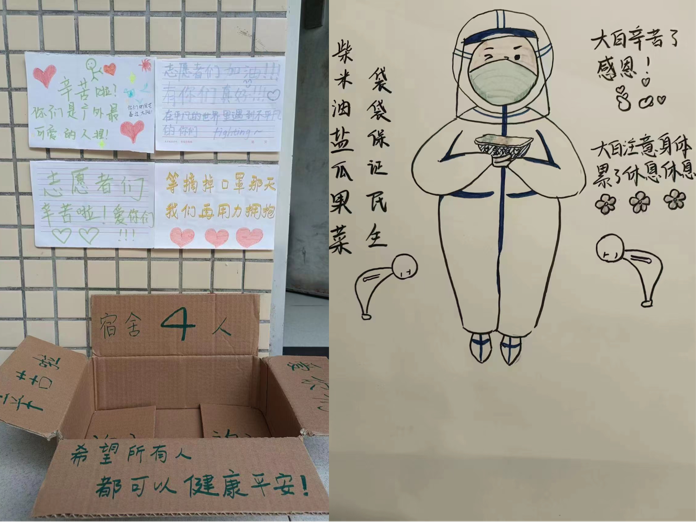 辛苦啦!
你们是户外最
可爱的人捏!
志愿者们加油!!!
有你们真好!!!
fighting~
志愿者们
辛苦啦!爱你们
!!!
等摘掉口罩那天
我们再用力拥抱
宿舍4人
辛苦
希望所有人
都可以健康平安!
柴米油盐瓜果菜
袋袋保证民生
大白辛苦了
感恩!
大白注意身体
累了休息休息